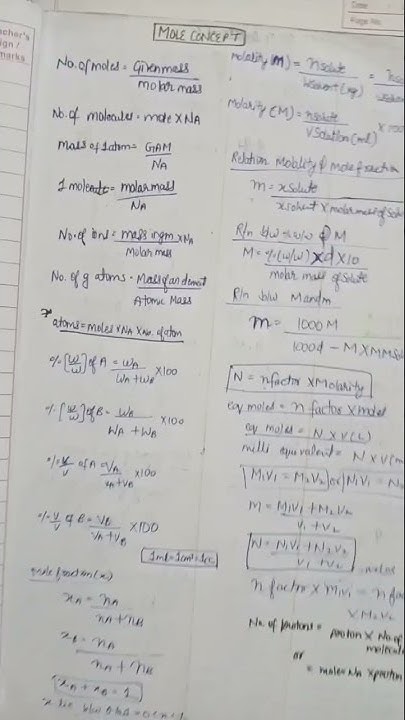 acher's
ign /
marks
Date :
Page No.
MOLE CONCEPT
No. of moles = Given mass
Molar mass
No. of molecules = mole X NA
Mass of 1 atom = GAM
NA
1 molecule = molar mass
NA
No. of ions = mass in gm X NA
Molar mass
No. of g atoms = Mass of an element
Atomic Mass
atoms = moles X NA X no. of atom
% [w/w] of A = WA X100
WA + WB
% [w/w] of B = WB X100
WA + WB
% v/v of A = VA X100
VA + VB
% v/v of B = VB X100
VA + VB
1ml = 1cm³ = 1cc
mole fraction (x)
xA = nA
nA + nB
xB = nA
nA + nB
xA + xB = 1
molality (m) = nsolute = nsolute
Wsolvent (kg)
Molarity (M) = nsolute X 100
Vsolution (ml)
Relation Molality & Mole fraction
m = xsolute
xsolvent X molar mass of solv
R/n b/w % w/w & M
M = % (w/w) X d X 10
molar mass of solute
R/n b/w M and m
m = 1000 M
1000d - M X MMS
N = n factor X Molarity
eq moles = n factor X moles
eq moles = N X V (L)
milli equivalent = N X V (m
M1V1 = M2V2 or N1V1 = N
M = M1V1 + M2V2
V1 + V2
N = N1V1 + N2V2
V1 + V2
n factor X M1V1 = n fac
X M2V2
No. of protons = proton X No. of
molecule
or
= mole X NA X proton